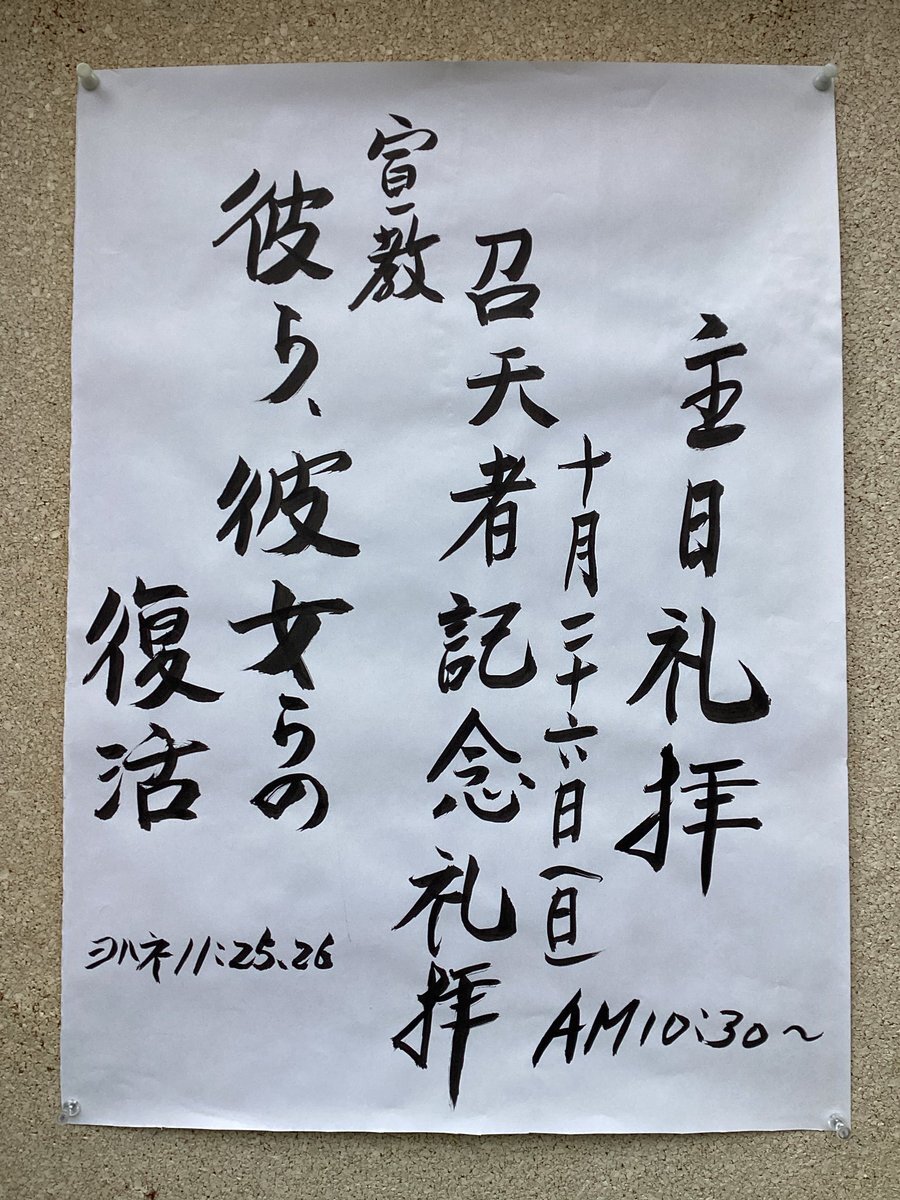 主日礼拝
十月二十六日(日)
AM10:30~
召天者記念礼拝
宣教
彼ら、彼女らの
復活
ヨハネ11:25、26